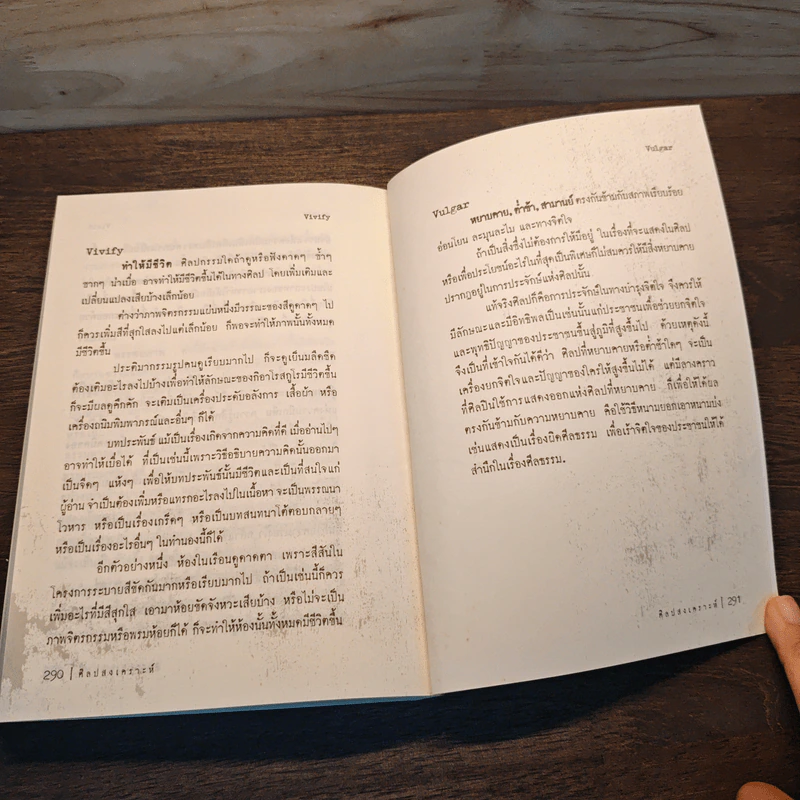 Vivify
Vivify
ทำให้มีชีวิต ศิลปกรรมใดถ้าดูหรือฟังดาดๆ ซ้ำๆ
ซากๆ น่าเบื่อ อาจทำให้มีชีวิตขึ้นได้ในทางศิลป โดยเพิ่มเติมและ
เปลี่ยนแปลงเสียบ้างเล็กน้อย
ต่างว่าภาพจิตรกรรมแผ่นหนึ่งมีวรรณะของสีดูดาดๆ ไป
ก็ควรเพิ่มสีที่สุกใสลงไปแต่เล็กน้อย ก็พอจะทำให้ภาพนั้นทั้งหมด
มีชีวิตขึ้น
ประติมากรรมรูปคนดูเรียบมากไป ก็จะดูเย็นมลืดชืด
ต้องเติมอะไรลงไปบ้างเพื่อทำให้ลักษณะของกิอาโรสกูโรมีชีวิตขึ้น
ก็จะมีผลดูคึกคัก จะเติมเป็นเครื่องประดับอลังการ เสื้อผ้า หรือ
เครื่องถนิมพิมพาภรณ์และอื่นๆ ก็ได้
บทประพันธ์ แม้เป็นเรื่องเกิดจากความคิดที่ดี เมื่ออ่านไปๆ
อาจทำให้เบื่อได้ ที่เป็นเช่นนี้เพราะวิธีอธิบายความคิดนั้นออกมา
เป็นจืดๆ แห้งๆ เพื่อให้บทประพันธ์นั้นมีชีวิตและเป็นที่สนใจแก่
ผู้อ่าน จำเป็นต้องเพิ่มหรือแทรกอะไรลงไปในเนื้อหา จะเป็นพรรณนา
โวหาร หรือเป็นเรื่องเกร็ดๆ หรือเป็นบทสนทนาโต้ตอบกลายๆ
หรือเป็นเรื่องอะไรอื่นๆ ในทำนองนี้ก็ได้
อีกตัวอย่างหนึ่ง ห้องในเรือนดูดาดตา เพราะสีสันใน
โครงการระบายสีขัดกันมากหรือเรียบมากไป ถ้าเป็นเช่นนี้ก็ควร
เพิ่มอะไรที่มีสีสุกใส เอามาห้อยขัดจังหวะเสียบ้าง หรือไม่จะเป็น
ภาพจิตรกรรมหรือพรมห้อยก็ได้ ก็จะทำให้ห้องนั้นทั้งหมดมีชีวิตขึ้น
290 | ศิลปสงเคราะห์
Vulgar
Vulgar
หยาบคาย, ต่ำช้า, สามานย์ ตรงกันข้ามกับสภาพเรียบร้อย
อ่อนโยน ละมุนละไม และทางจิตใจ
ถ้าเป็นสิ่งซึ่งไม่ต้องการให้มีอยู่ ในเรื่องที่จะแสดงในศิลป
หรือเพื่อประโยชน์อะไรในที่สุดเป็นพิเศษก็ไม่สมควรให้มีสิ่งหยาบคาย
ปรากฏอยู่ในการประจักษ์แห่งศิลปนั้น
แท้จริงศิลปก็คือการประจักษ์ในทางบำรุงจิตใจ จึงควรให้
มีลักษณะและมีอิทธิพลเป็นเช่นนั้นแก่ประชาชนเพื่อช่วยยกจิตใจ
และพุทธิปัญญาของประชาชนขึ้นสู่ภูมิที่สูงขึ้นไป ด้วยเหตุดังนี้
จึงเป็นที่เข้าใจกันได้ดีว่า ศิลปที่หยาบคายหรือต่ำช้าใดๆ จะเป็น
เครื่องยกจิตใจและปัญญาของใครให้สูงขึ้นไม่ได้ แต่มีลางคราว
ที่ศิลปินใช้การแสดงออกแห่งศิลปที่หยาบคาย ก็เพื่อให้ได้ผล
ตรงกันข้ามกับความหยาบคาย คือใช้วิธีหนามยอกเอาหนามบ่ง
เช่นแสดงเป็นเรื่องผิดศีลธรรม เพื่อเร้าจิตใจของประชาชนให้ได้
สำนึกในเรื่องศีลธรรม.
ศิลปสงเคราะห์ | 291